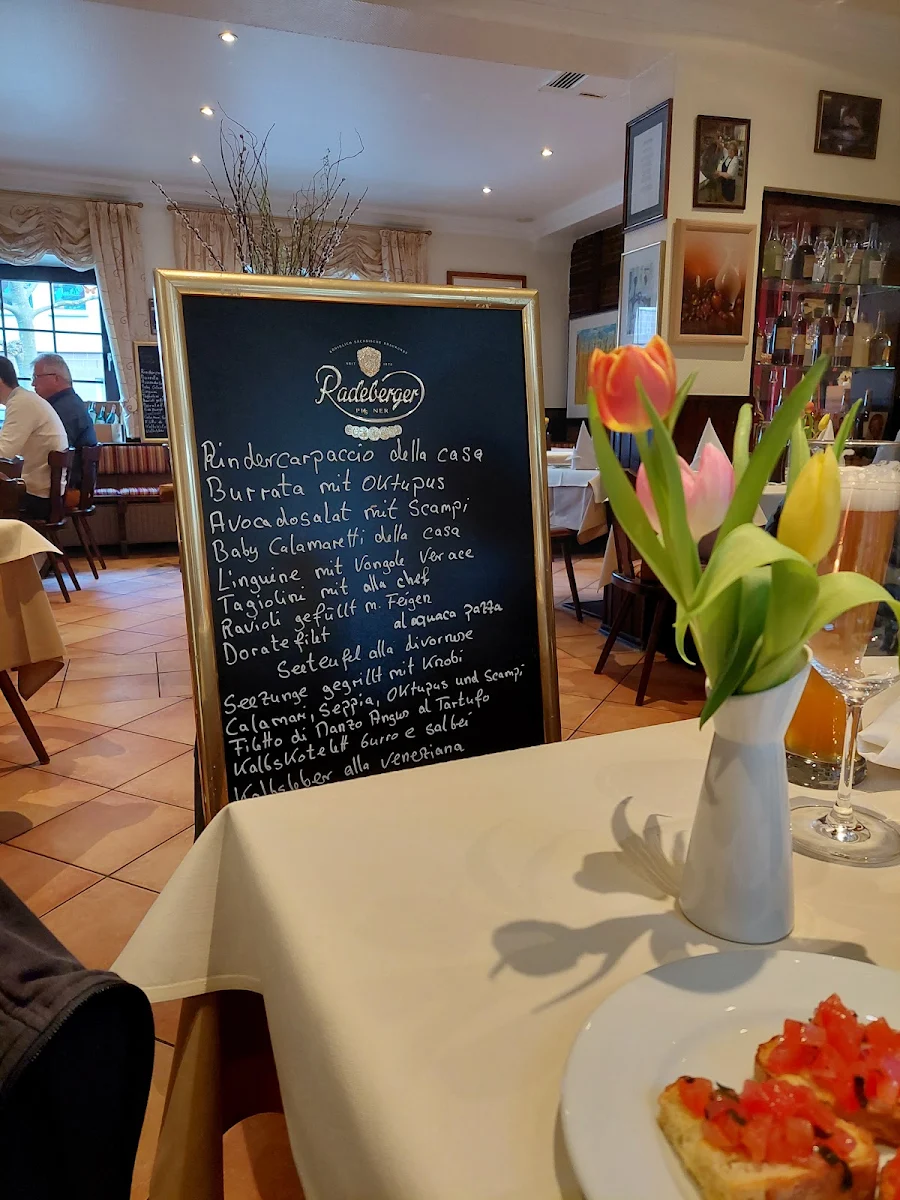 KÖNIGLICH SÄCHSISCHE BRAUKUNST
SEIT 1872
Radeberger
PILSNER
Rindercarpaccio della casa
Burrata mit Oktupus
Avocadosalat mit Scampi
Baby Calamaretti della casa
Linguine mit Vongole Verace
Tagiolini mit alla chef
Ravioli gefüllt m. Feigen
Doratefilet al aquaca pazza
Seeteufel alla divornose
Seezunge gegrillt mit Knobi
Calamari, Seppia, Oktupus und Scampi
Filetto di Manzo Angus al Tartufo
Kalbskotelett burro e salbei
Kalbsleber alla Veneziana